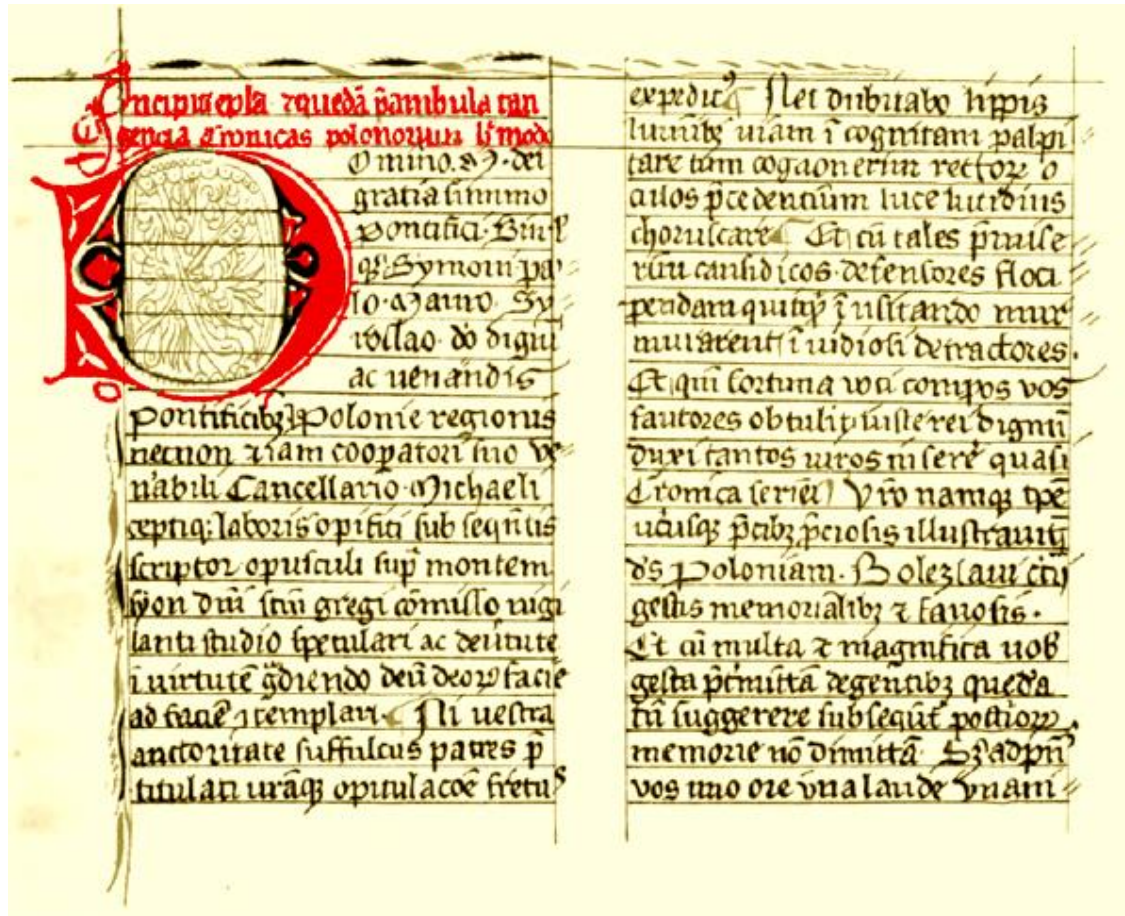 Incipiu͂t epl̄a ⁊ quedā p̄ambula tan
gencia cronicas polonorum
Omino. M. dei
gratia summo
pontifici. Sim̄l
qꝫ Symoni pa
lo. Mauro. Sy
roslao. do digni
ac uen̄andis
pontificibꝫ Polonie regionis
necnon ⁊iam coop̄atori suo ve
n̄abili Cancellario. Michaeli
ceptiqꝫ laboris opifici sub seqn̄tis
scriptor opusculi sup̄ montem
syon dn̄i scm̄ gregi cōmisso uigi
lanti studio speculari ac deu̓tute
i uirtutē ḡdiendo deū deoꝝ facie
ad faciē ꝯtemplari. Ni uestra
auctoritate suffulcus patres p̄
titulati ur̄aqꝫ opitulacōe fretꝰ
Nec dubitabo lippis
luminibꝫ uiam ī cognitam palpi
tare cum cognouerim rectorꝝ o
culos p̄cedentium luce lucidius
choruscare. Et cū tales p̄uise
rim causidicos defensores floci
pendam quitq̄ ī usitando mur
murarent ī uidiosi detractores.
Et qm̄ fortuna uoti compos vos
fautores obtulit iuste rei dignū
duxi tantos uiros inserē quasi
Cronica seriei. Vr̄o namqꝫ tp̄e
ur̄isque p̄cibꝫ p̄ciosis illustrauit
ds̄ Poloniam. Bolezlaui
gestis memorialibꝫ ⁊ famosis.
Et cū multa ⁊ magnifica uob̄
gesta p̄t̓mittā degentibꝫ quedā
tn̄ suggerere subseqn̄t̓ post̓ioꝝ
memorie nō dimittā. Sꝫ ad p̄n̄s
vos uno ore una laude vnani